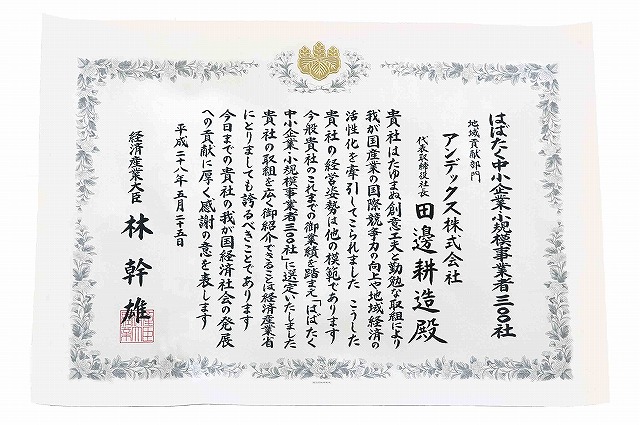 はばたく中小企業・小規模事業者三〇〇社
地域貢献部門
アンデックス株式会社
代表取締役社長 田邊耕造殿
貴社はたゆまぬ創意工夫と勤勉な取組により
我が国産業の国際競争力の向上や地域経済の
活性化を牽引してこられました こうした
貴社の経営姿勢は他の模範であります
今般貴社のこれまでの御業績を踏まえ「はばたく
中小企業・小規模事業者三〇〇社」に選定いたしました
貴社の取組を広く御紹介できることは経済産業省
にとりましても誇るべきことであります
今日までの貴社の我が国経済社会の発展
への貢献に厚く感謝の意を表します
平成二十八年五月二十五日
経済産業大臣 林 幹雄